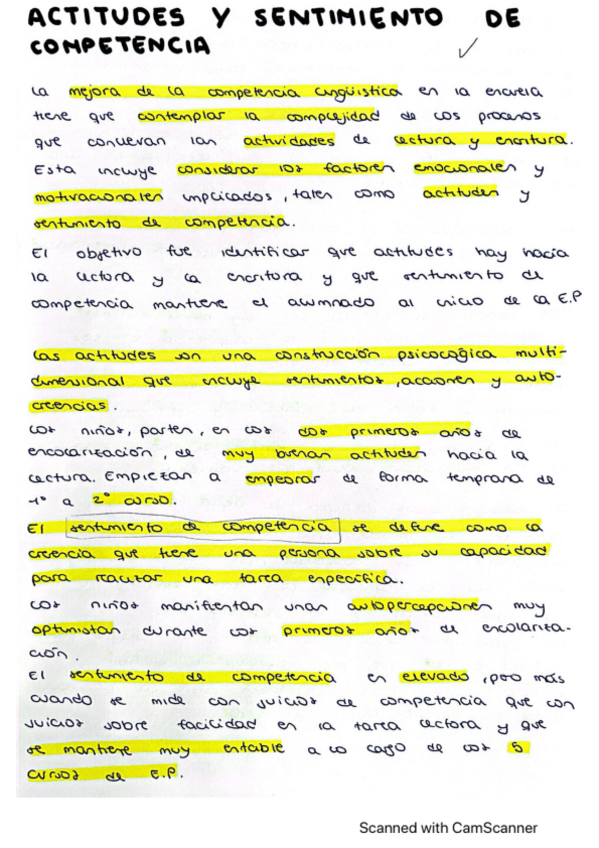 ACTITUDES Y SENTIMIENTO DE
COMPETENCIA
La mejora de la competencia lingüistica en la escuela
tiene que contemplar la complejidad de los procesos
que conllevan las actividades de lectura y escritura.
Esta incluye considerar los factores emocionales y
motivacionales implicados, tales como actitudes y
sentimiento de competencia.
El objetivo fue identificar que actitudes hay hacia
la lectora y la escritora y que sentimiento de
competencia mantiene el alumnado al inicio de la E.P
Las actitudes son una construcción psicológica multi-
dimensional que incluye sentimientos, acciones y auto-
creencias.
Los niños, parten, en los dos primeros años de
escolarización, de muy buenas actitudes hacia la
lectura. Empiezan a empeorar de forma temprana de
1º a 2º curso.
El sentimiento de competencia se define como la
creencia que tiene una persona sobre su capacidad
para realizar una tarea específica.
Los niños manifiestan unas autopercepciones muy
optimistas durante los primeros años de escolariza-
ción.
El sentimiento de competencia es elevado, pero más
cuando se mide con juicios de competencia que con
juicios sobre facilidad en la tarea lectora y que
se mantiene muy estable a lo largo de los 5
cursos de E.P.
Scanned with CamScanner